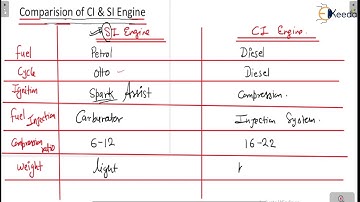 Comparision of CI & SI Engine
Ekeeda
SI Engine CI Engine
Fuel Petrol Diesel
Cycle Otto Diesel
Ignition Spark Assist Compression.
Fuel Injection Carburator Injection System.
Compression ratio 6-12 16-22
Weight light